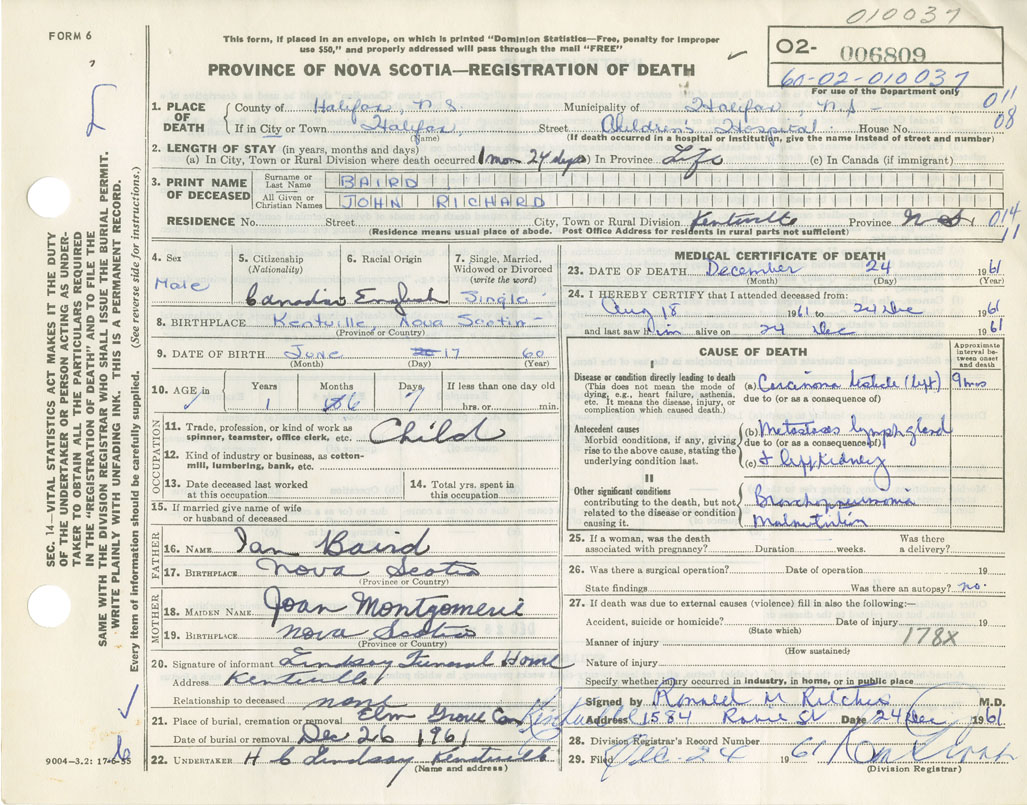 010037
FORM 6
This form, if placed in an envelope, on which is printed "Dominion Statistics—Free, penalty for improper
use $50," and properly addressed will pass through the mail "FREE"
PROVINCE OF NOVA SCOTIA—REGISTRATION OF DEATH
O2- 006809
60-02-010037
For use of the Department only
011
08
1. PLACE OF DEATH
County of Halifax, N S Municipality of Halifax, N.S-
If in City or Town Halifax, Street Childrens Hospital House No.
(Name) (If death occurred in a hospital or institution, give the name instead of street and number)
2. LENGTH OF STAY (in years, months and days)
(a) In City, Town or Rural Division where death occurred 1 mon 24 days (b) In Province Life (c) In Canada (if immigrant)
3. PRINT NAME OF DECEASED
Surname or Last Name BAIRD
All Given or Christian Names JOHN RICHARD
RESIDENCE No. Street City, Town or Rural Division Kentville Province N S
014
11
(Residence means usual place of abode. Post Office Address for residents in rural parts not sufficient)
4. Sex Male
5. Citizenship (Nationality) Canadian
6. Racial Origin English
7. Single, Married, Widowed or Divorced (write the word) Single
8. BIRTHPLACE Kentville, Nova Scotia
(Province or Country)
9. DATE OF BIRTH June 17 60
(Month) (Day) (Year)
10. AGE in Years Months Days If less than one day old
1 6 7 hrs. or min.
OCCUPATION
11. Trade, profession, or kind of work as spinner, teamster, office clerk, etc. Child
12. Kind of industry or business, as cotton-mill, lumbering, bank, etc.
13. Date deceased last worked at this occupation
14. Total yrs. spent in this occupation
15. If married give name of wife or husband of deceased
FATHER
16. NAME Ian Baird
17. BIRTHPLACE Nova Scotia
(Province or Country)
MOTHER
18. MAIDEN NAME Joan Montgomerie
19. BIRTHPLACE Nova Scotia
(Province or Country)
20. Signature of informant Lindsay Funeral Home
Address Kentville
Relationship to deceased none
21. Place of burial, cremation or removal Elm Grove Cem
Date of burial or removal Dec 26 1961
22. UNDERTAKER H C Lindsay Kentville
(Name and address)
MEDICAL CERTIFICATE OF DEATH
23. DATE OF DEATH December 24 1961
(Month) (Day) (Year)
24. I HEREBY CERTIFY that I attended deceased from:
Aug 18 1961 to 24 Dec 1961
and last saw him alive on 24 Dec 1961
CAUSE OF DEATH
Approximate interval between onset and death
I
Disease or condition directly leading to death
(This does not mean the mode of dying, e.g., heart failure, asthenia, etc. It means the disease, injury, or complication which caused death.)
(a) Carcinoma testicle (left) 9 mos
due to (or as a consequence of)
Antecedent causes
Morbid conditions, if any, giving rise to the above cause, stating the underlying condition last.
(b) Metastases lymph gland
due to (or as a consequence of)
(c) & left kidney
II
Other significant conditions
contributing to the death, but not related to the disease or condition causing it.
Bronchopneumonia
Malnutrition
25. If a woman, was the death associated with pregnancy? Duration weeks. Was there a delivery?
26. Was there a surgical operation? Date of operation 19
State findings Was there an autopsy? no.
27. If death was due to external causes (violence) fill in also the following:—
Accident, suicide or homicide? Date of injury 19
(State which)
178X
Manner of injury
(How sustained)
Nature of injury
Specify whether injury occurred in industry, in home, or in public place
Signed by Ronald M Ritchie M.D.
Address 1584 Robie St Date 24 Dec 1961
28. Division Registrar's Record Number
29. Filed Dec-24 1961
(Division Registrar)
SEC. 14—VITAL STATISTICS ACT MAKES IT THE DUTY
OF THE UNDERTAKER OR PERSON ACTING AS UNDER-
TAKER TO OBTAIN ALL THE PARTICULARS REQUIRED
IN THE "REGISTRATION OF DEATH" AND TO FILE THE
SAME WITH THE DIVISION REGISTRAR WHO SHALL ISSUE THE BURIAL PERMIT.
WRITE PLAINLY WITH UNFADING INK. THIS IS A PERMANENT RECORD.
Every item of information should be carefully supplied. (See reverse side for instructions.)
9004-3.2: 17-6-55